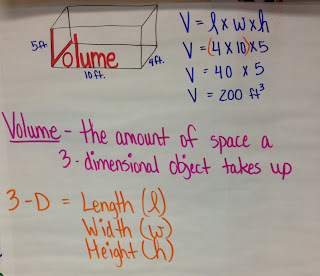 5ft.
Volume
4ft.
10ft.
V = l x w x h
V = (4 x 10) x 5
V = 40 x 5
V = 200 ft³
Volume - the amount of space a
3-dimensional object takes up
3-D = Length (l)
Width (w)
Height (h)